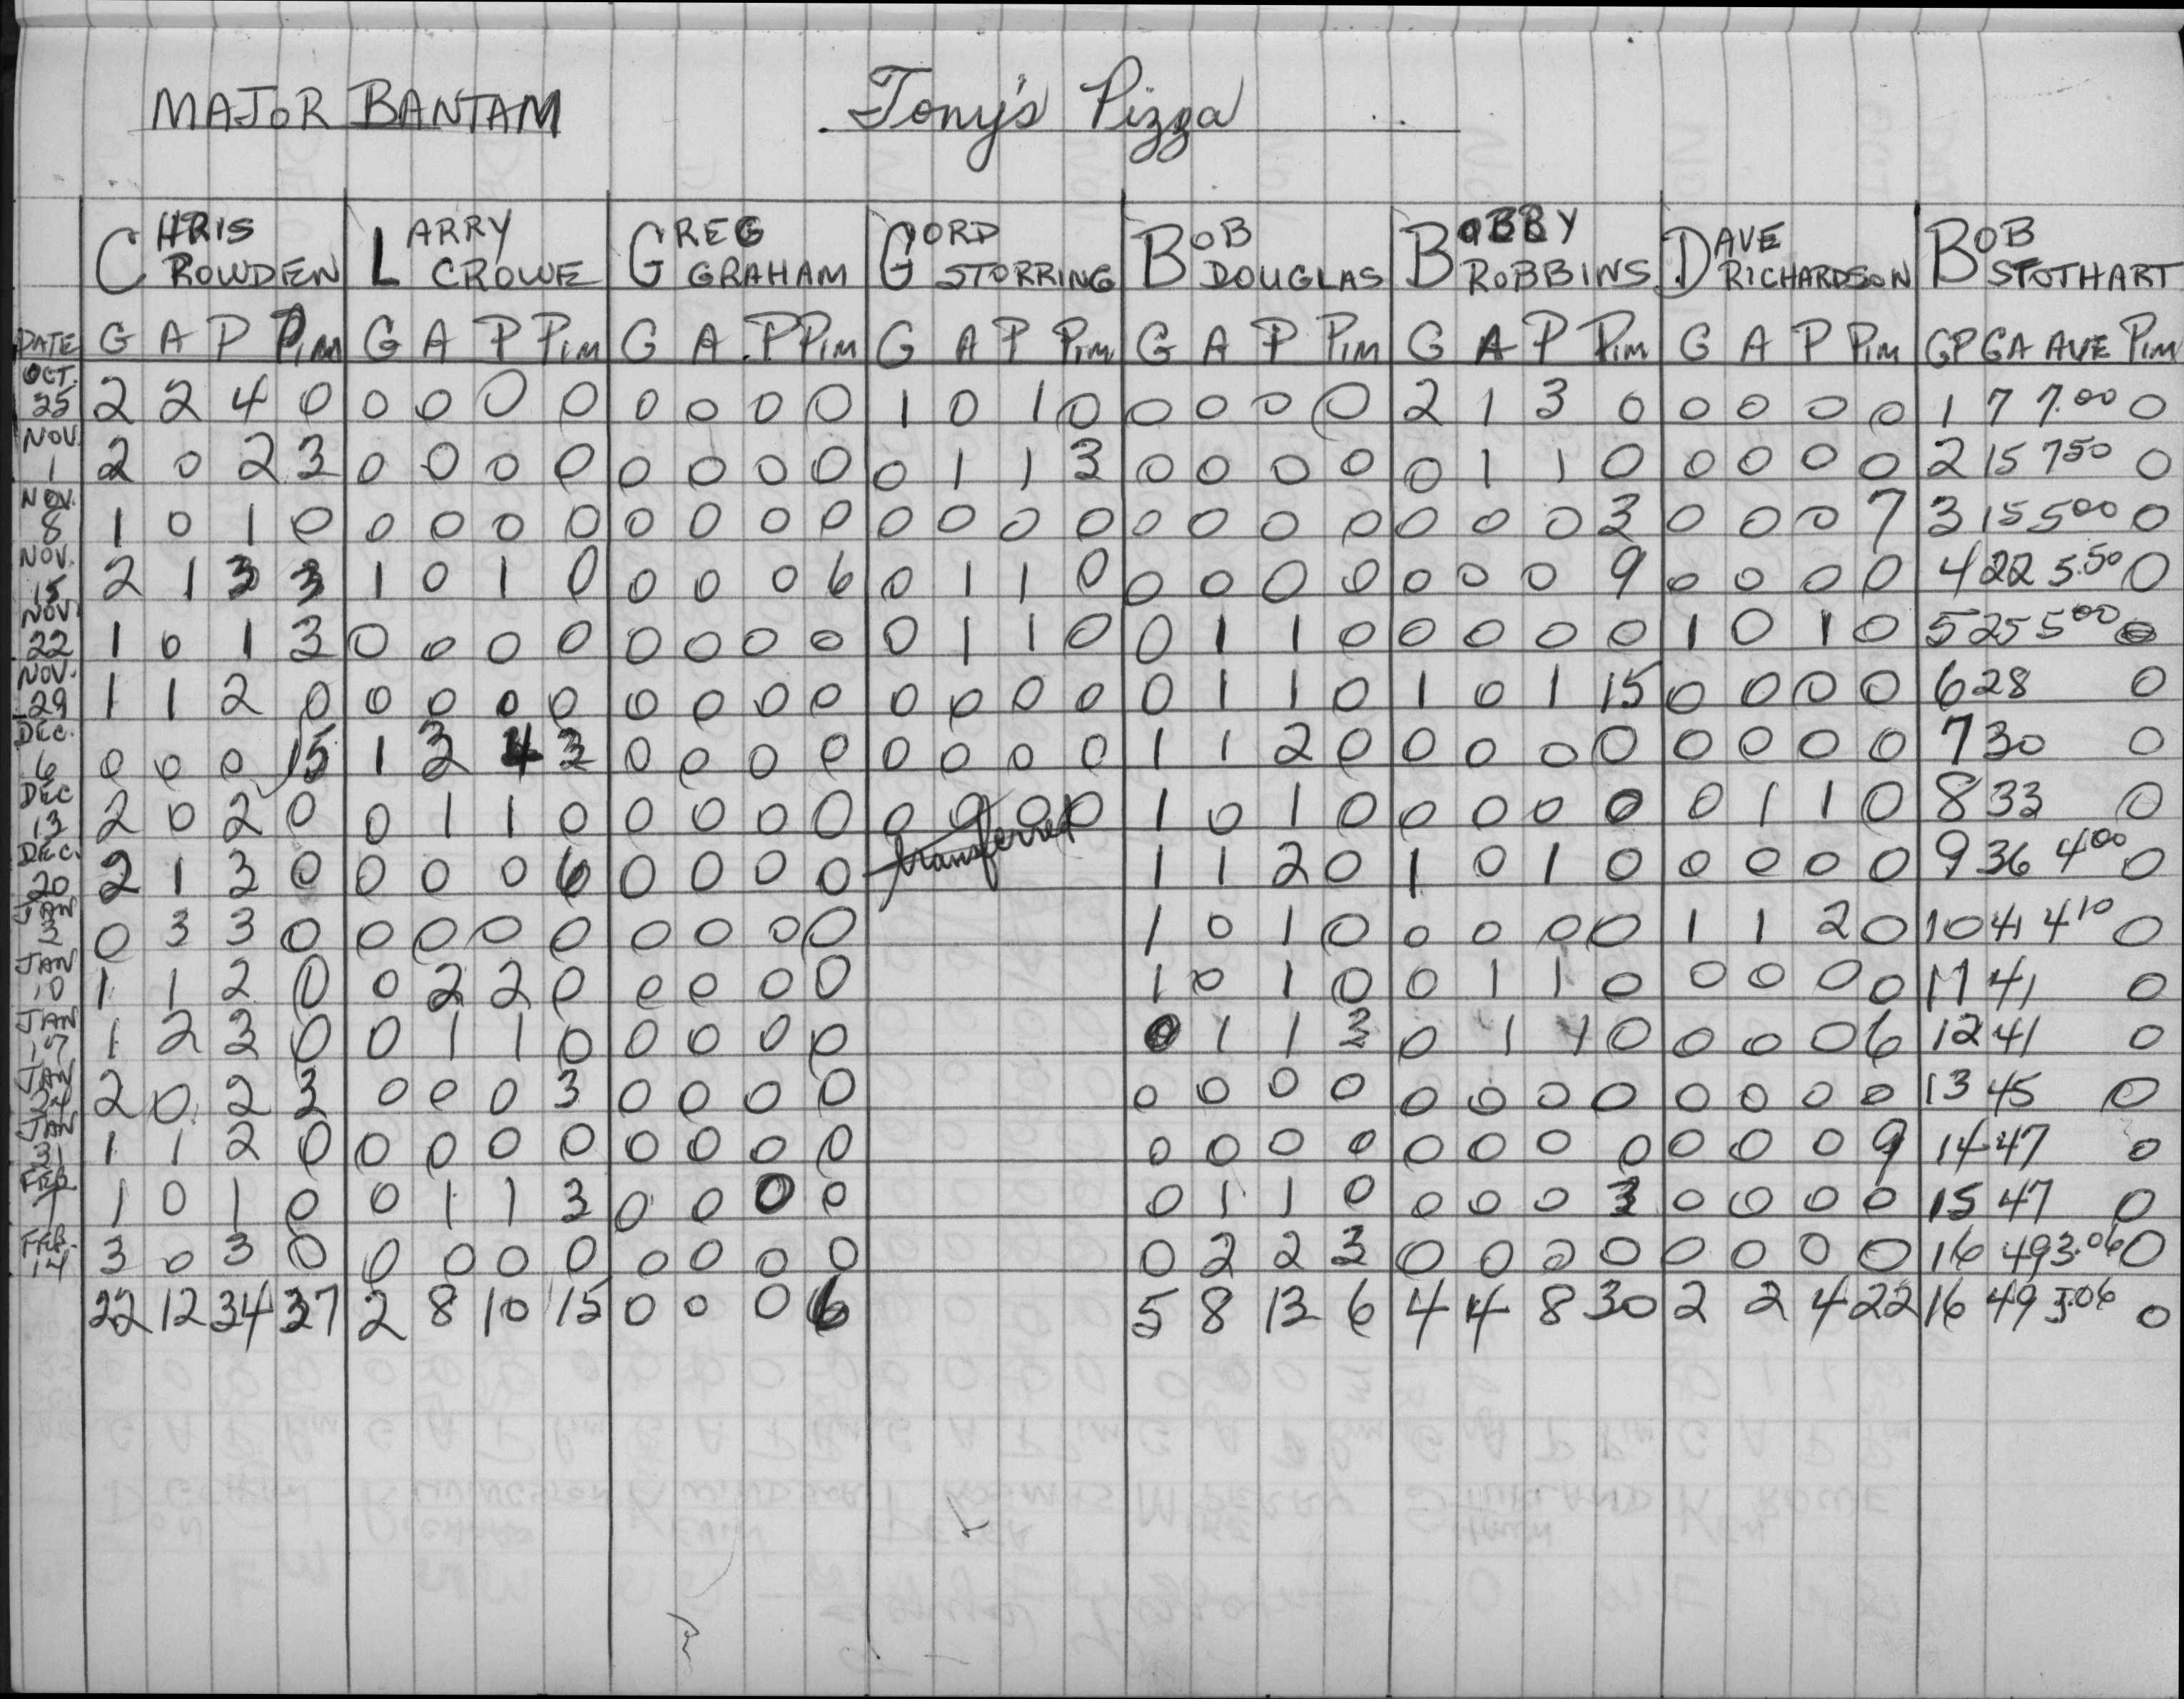 MAJOR BANTAM Tony's Pizza
CHRIS ROWDEN LARRY CROWE GREG GRAHAM GORD STORRING BOB DOUGLAS BOBBY ROBBINS DAVE RICHARDSON BOB STOTHART
DATE G A P Pim G A P Pim G A P Pim G A P Pim G A P Pim G A P Pim G A P Pim GP GA AVE Pim
OCT. 25 2 2 4 0 0 0 0 0 0 0 0 0 1 0 1 0 0 0 0 0 2 1 3 0 0 0 0 0 1 7 7.00 0
NOV. 1 2 0 2 3 0 0 0 0 0 0 0 0 0 1 1 3 0 0 0 0 0 1 1 0 0 0 0 0 2 15 750 0
NOV. 8 1 0 1 0 0 0 0 0 0 0 0 0 0 0 0 0 0 0 0 0 0 0 0 3 0 0 0 7 3 15 500 0
NOV. 15 2 1 3 3 1 0 1 0 0 0 0 6 0 1 1 0 0 0 0 0 0 0 0 9 0 0 0 0 4 22 5.50 0
NOV 22 1 0 1 3 0 0 0 0 0 0 0 0 0 1 1 0 0 1 1 0 0 0 0 0 1 0 1 0 5 25 500 0
NOV. 29 1 1 2 0 0 0 0 0 0 0 0 0 0 0 0 0 0 1 1 0 1 0 1 15 0 0 0 0 6 28 0
DEC. 6 0 0 0 15 1 3 4 3 0 0 0 0 0 0 0 0 1 1 2 0 0 0 0 0 0 0 0 0 7 30 0
DEC 13 2 0 2 0 0 1 1 0 0 0 0 0 0 0 0 0 1 0 1 0 0 0 0 0 0 1 1 0 8 33 0
DEC. 20 2 1 3 0 0 0 0 6 0 0 0 0 transferred 1 1 2 0 1 0 1 0 0 0 0 0 9 36 400 0
JAN 3 0 3 3 0 0 0 0 0 0 0 0 0 1 0 1 0 0 0 0 0 1 1 2 0 10 41 410 0
JAN 10 1 1 2 0 0 2 2 0 0 0 0 0 1 0 1 0 0 1 1 0 0 0 0 0 11 41 0
JAN 17 1 2 3 0 0 1 1 0 0 0 0 0 0 1 1 3 0 1 1 0 0 0 0 6 12 41 0
JAN 24 2 0 2 3 0 0 0 3 0 0 0 0 0 0 0 0 0 0 0 0 0 0 0 0 13 45 0
JAN 31 1 1 2 0 0 0 0 0 0 0 0 0 0 0 0 0 0 0 0 0 0 0 0 9 14 47 0
FEB 7 1 0 1 0 0 1 1 3 0 0 0 0 0 1 1 0 0 0 0 3 0 0 0 0 15 47 0
FEB. 14 3 0 3 0 0 0 0 0 0 0 0 0 0 2 2 3 0 0 0 0 0 0 0 0 16 49 3.06 0
22 12 34 37 2 8 10 15 0 0 0 6 5 8 13 6 4 4 8 30 2 2 4 22 16 49 3.06 0